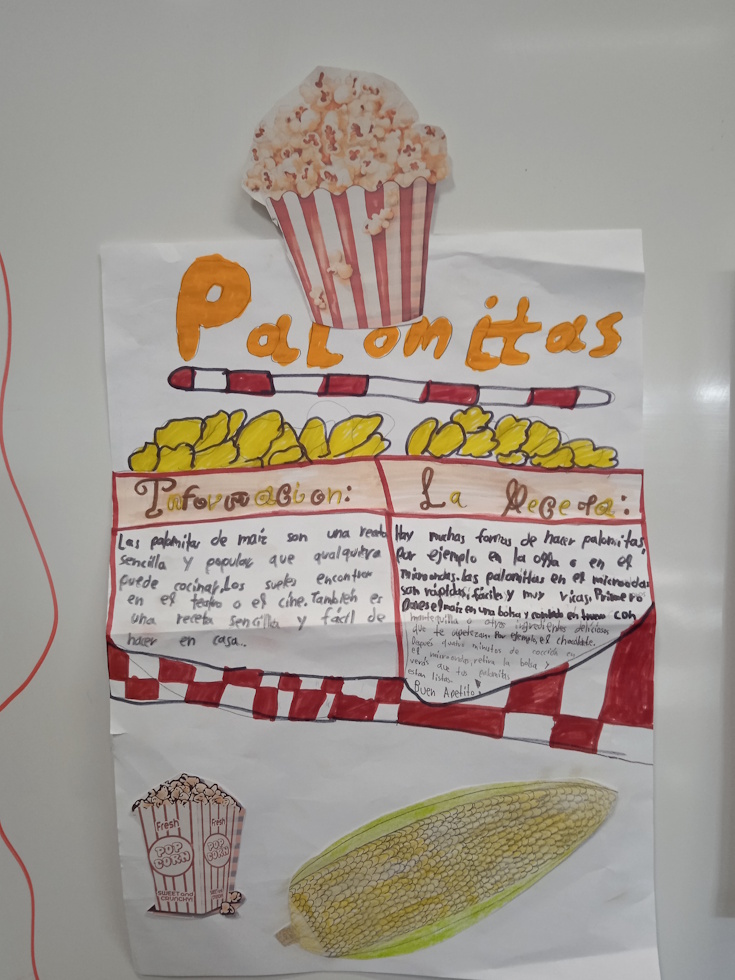 Palomitas
Informacion:
Las palomitas de maiz son una receta
sencilla y popular que qualquiera
puede cocinar. Los sueles encontrar
en el teatro o el cine. También es
una receta sencilla y fácil de
hacer en casa..
La Receta:
Hay muchas formas de hacer palomitas,
Por ejemplo en la olla o en el
microondas. Las palomitas en el microondas
son rápidas, fáciles y muy ricas. Primero
pones el maiz en una bolsa y con
mantequilla o otros ingredientes deliciosos
que te apetezcan. Por ejemplo, el chocolate.
Después quatro minutos de cocción en
el microondas, retira la bolsa y
verás que tus palomitas
estan listas.
Buen Apetito!
Fresh
POP
CORN
SWEET and
CRUNCHY!
Fresh
POP
CORN